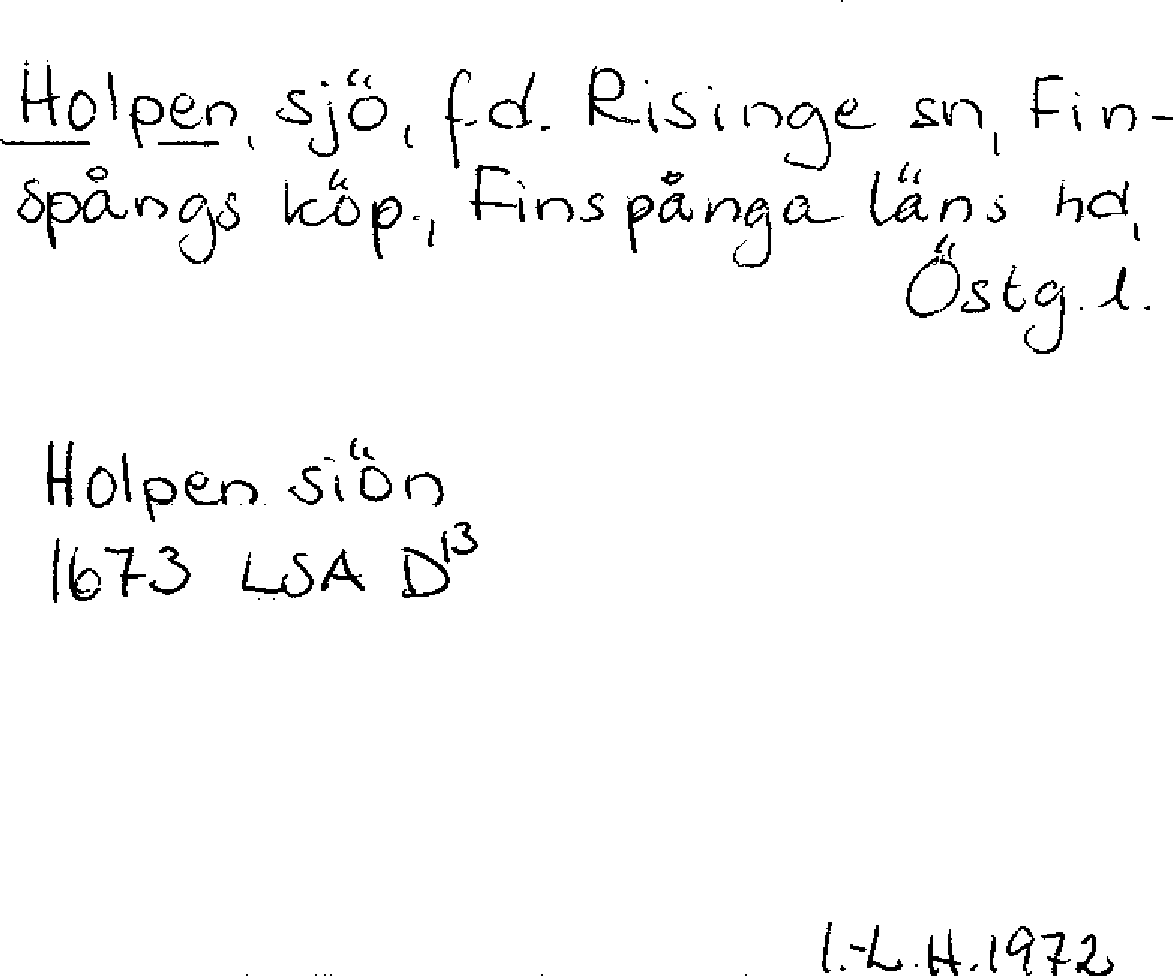 Holpen, sjö, f.d. Risinge sn, Fin-
spångs köp., Finspånga läns hd,
Östg. l.
Holpen siön
1673 LSA D13
I.-L.H. 1972